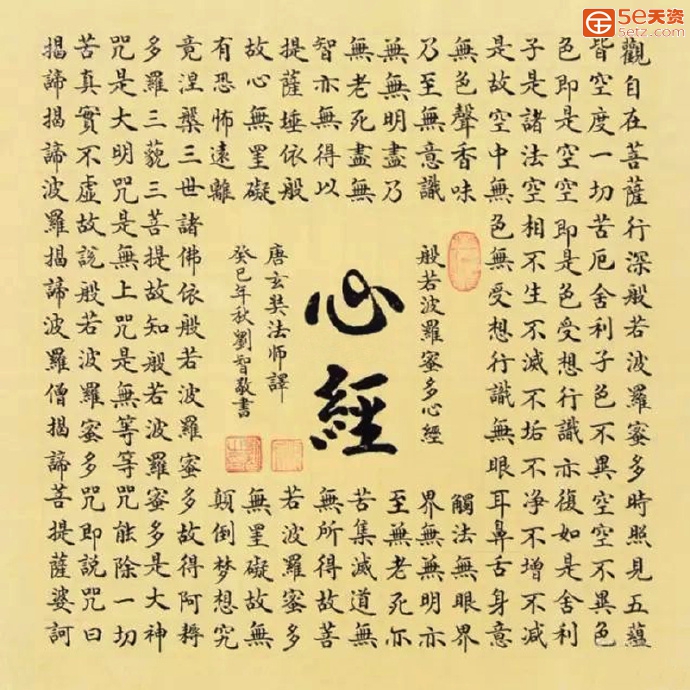 觀自在菩薩行深般若波羅蜜多時照見五蘊
皆空度一切苦厄舍利子色不異空空不異色
色即是空空即是色受想行識亦復如是舍利
子是諸法空相不生不滅不垢不净不增不減
是故空中無色無受想行識無眼耳鼻舌身意
無色聲香味觸法無眼界
乃至無意識界無無明亦
無無明盡乃至無老死亦
無老死盡無苦集滅道無
智亦無得以無所得故菩
提薩埵依般若波羅蜜多
故心無罣礙無罣礙故無
有恐怖遠離顛倒梦想究
竟涅槃三世諸佛依般若波羅蜜多故得阿耨
多羅三藐三菩提故知般若波羅蜜多是大神
咒是大明咒是無上咒是無等等咒能除一切
苦真實不虛故說般若波羅蜜多咒即說咒曰
揭諦揭諦波羅揭諦波羅僧揭諦菩提薩婆訶
般若波羅蜜多心經
心經
唐玄奘法師譯
癸巳年秋劉智敬書
5e天资
5etz.com